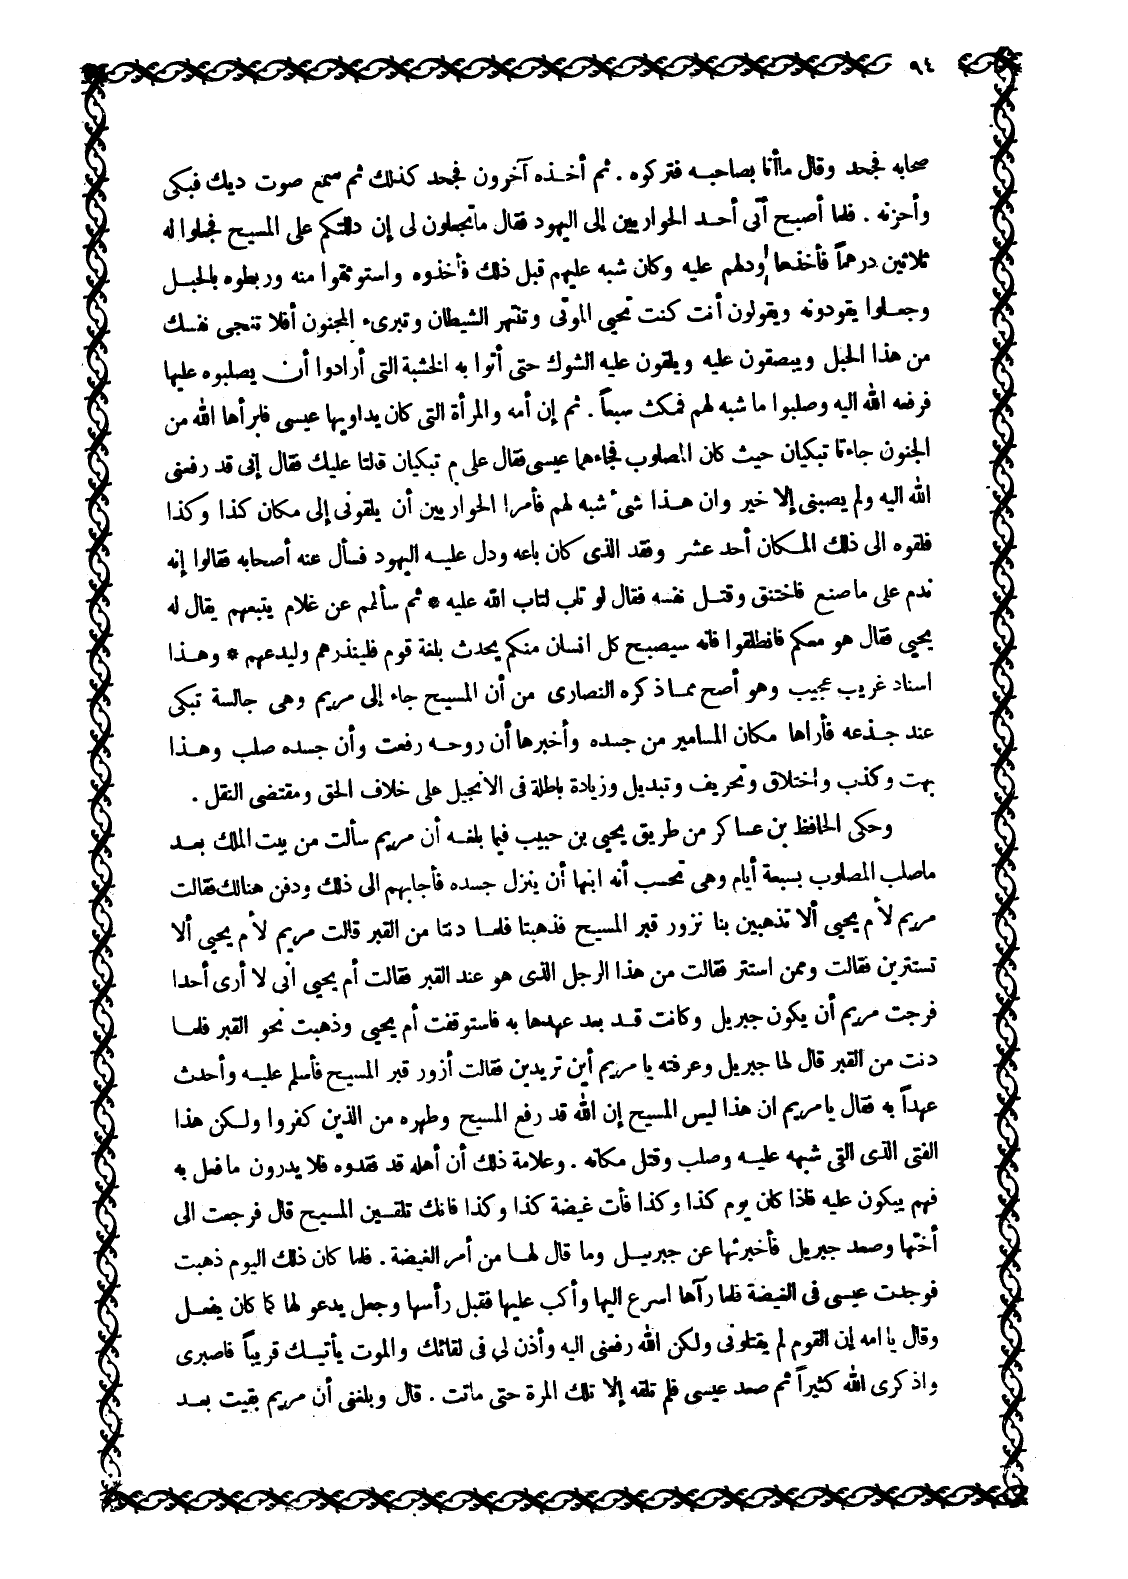 ٩٤
صحابه فجحد وقال ماأنا بصاحبه فتركوه . ثم أخذه آخرون فجحد كذلك ثم سمع صوت ديك فبكى
وأحزنه . فلما أصبح أتى أحد الحواريين إلى اليهود فقال ماتجعلون لى إن دللتكم على المسيح فجعلوا له
ثلاثين درهماً فأخذها ودلهم عليه وكان شبه عليهم قبل ذلك فأخذوه واستوثقوا منه وربطوه بالحبل
وجعلوا يقودونه ويقولون أنت كنت تحيى الموتى وتنتهر الشيطان وتبرىء المجنون أفلا تنجى نفسك
من هذا الحبل ويبصقون عليه ويلقون عليه الشوك حتى أتوا به الخشبة التى أرادوا أن يصلبوه عليها
فرفعه الله اليه وصلبوا ما شبه لهم فمكث سبعاً . ثم إن أمه والمرأة التى كان يداويها عيسى فابرأها الله من
الجنون جاءتا تبكيان حيث كان المصلوب فجاءهما عيسى فقال على م تبكيان قالتا عليك فقال إنى قد رفعنى
الله اليه ولم يصبنى إلا خير وان هذا شىء شبه لهم فأمرا الحواريين أن يلقونى إلى مكان كذا وكذا
فلقوه الى ذلك المكان أحد عشر وفقد الذى كان باعه ودل عليه اليهود فسأل عنه أصحابه فقالوا إنه
ندم على ماصنع فاختنق وقتل نفسه فقال لو تاب لتاب الله عليه * ثم سألهم عن غلام يتبعهم يقال له
يحيى فقال هو معكم فانطلقوا فانه سيصبح كل انسان منكم يحدث بلغة قوم فلينذرهم وليدعهم * وهذا
اسناد غريب عجيب وهو أصح مماذكره النصارى من أن المسيح جاء إلى مريم وهى جالسة تبكى
عند جذعه فأراها مكان المسامير من جسده وأخبرها أن روحه رفعت وأن جسده صلب وهذا
بهت وكذب واختلاق وتحريف وتبديل وزيادة باطلة فى الانجيل على خلاف الحق ومقتضى النقل .
وحكى الحافظ بن عساكر من طريق يحيى بن حبيب فيما بلغه أن مريم سألت من بيت الملك بعد
ماصلب المصلوب بسبعة أيام وهى تحسب أنه ابنها أن ينزل جسده فأجابهم الى ذلك ودفن هنالك فقالت
مريم لأم يحيى ألا تذهبين بنا نزور قبر المسيح فذهبتا فلما دنتا من القبر قالت مريم لأم يحيى ألا
تستترين فقالت وممن استتر فقالت من هذا الرجل الذى هو عند القبر فقالت أم يحيى انى لا أرى أحدا
فرجت مريم أن يكون جبريل وكانت قد بعد عهدها به فاستوقفت أم يحيى وذهبت نحو القبر فلما
دنت من القبر قال لها جبريل وعرفته يا مريم أين تريدين فقالت أزور قبر المسيح فأسلم عليه وأحدث
عهداً به فقال يامريم ان هذا ليس المسيح إن الله قد رفع المسيح وطهره من الذين كفروا ولكن هذا
الفتى الذى القى شبهه عليه وصلب وقتل مكانه . وعلامة ذلك أن أهله قد فقدوه فلا يدرون مافعل به
فهم يبكون عليه فاذا كان يوم كذا وكذا فأت غيضة كذا وكذا فانك تلقين المسيح قال فرجعت الى
أختها وصعد جبريل فأخبرتها عن جبريل وما قال لها من أمر الغيضة . فلما كان ذلك اليوم ذهبت
فوجدت عيسى فى الغيضة فلما رآها اسرع اليها وأكب عليها فقبل رأسها وجعل يدعو لها كما كان يفعل
وقال يا امه إن القوم لم يقتلونى ولكن الله رفعنى اليه وأذن لى فى لقائك والموت يأتيك قريباً فاصبرى
واذكرى الله كثيراً ثم صعد عيسى فلم تلقه إلا تلك المرة حتى ماتت . قال وبلغنى أن مريم بقيت بعد